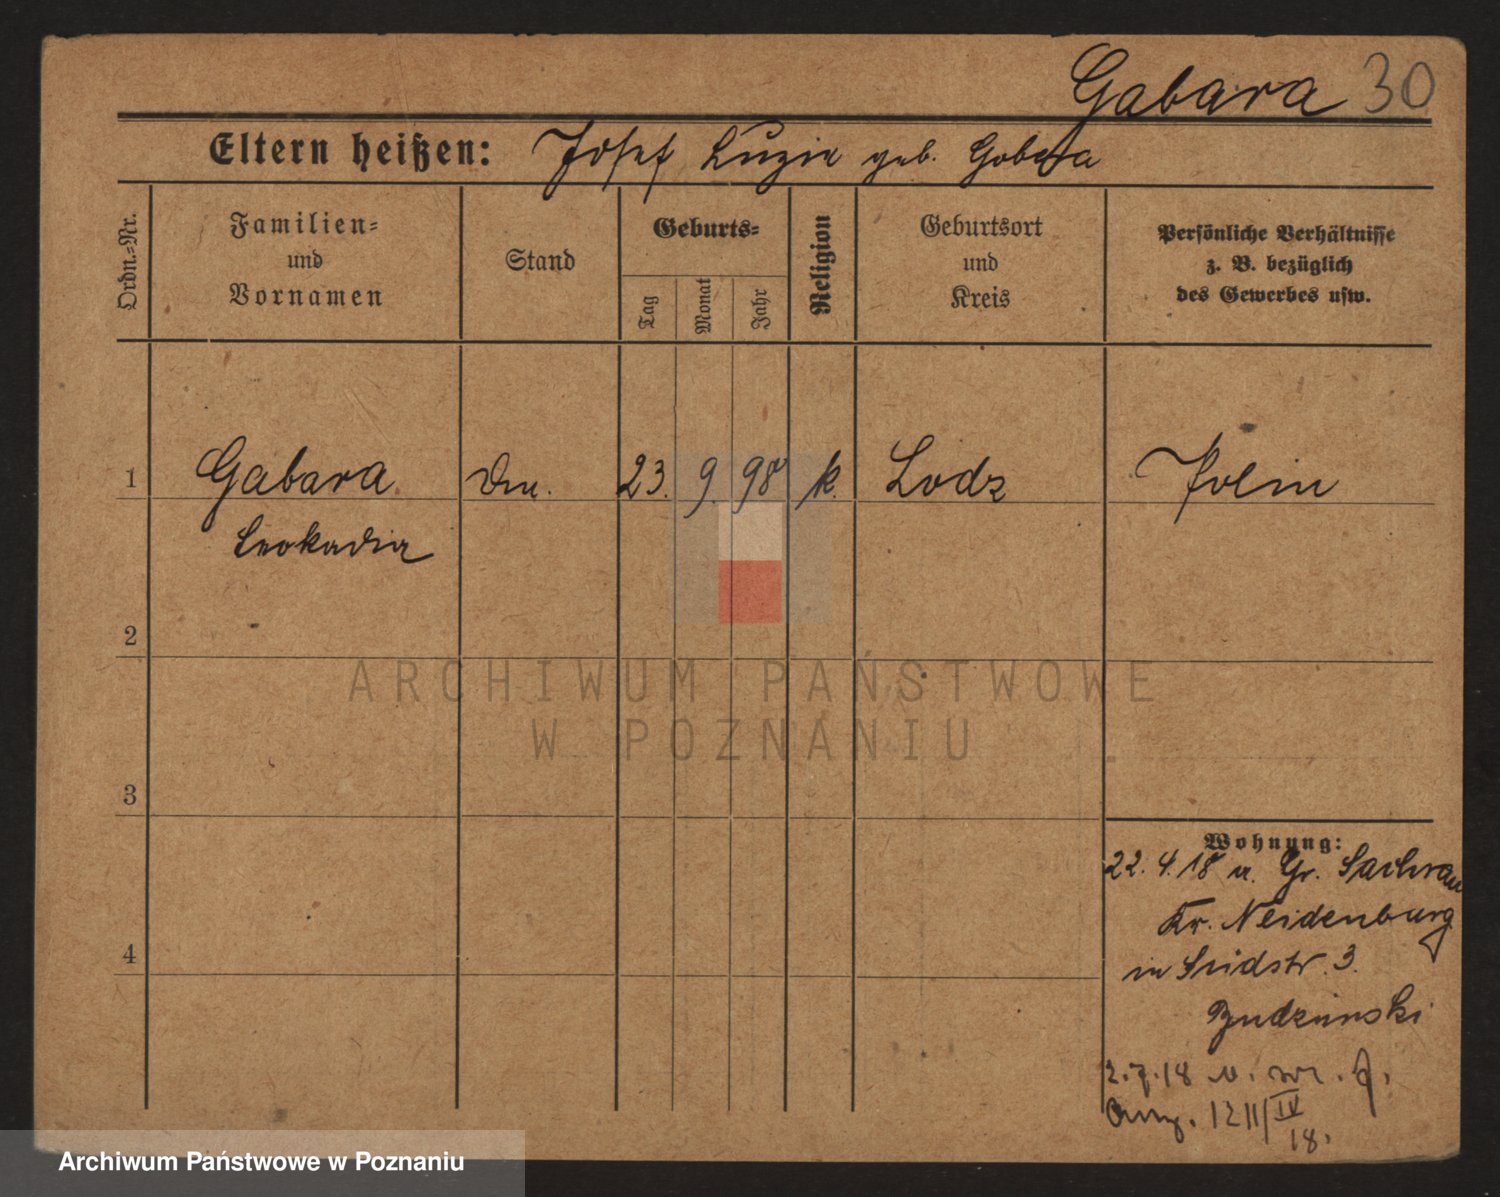 Gabara 30
Eltern heißen: Josef Luzia geb. Gobera
Ordn.-Nr.
Familien-
und
Vornamen
Stand
Geburts-
Tag
Monat
Jahr
Religion
Geburtsort
und
Kreis
Persönliche Verhältnisse
z. B. bezüglich
des Gewerbes usw.
1 Gabara 23. 9. 98 k. Lodz Polin
Leokadia
2
ARCHIWUM PAŃSTWOWE
W POZNANIU
3
Wohnung:
22. 4. 18 v. Gr. Sachrau
Kr. Neidenburg
4
in Seidstr. 3.
Budzinski
2. 7. 18 v.
1211/IV
18.
Archiwum Państwowe w Poznaniu